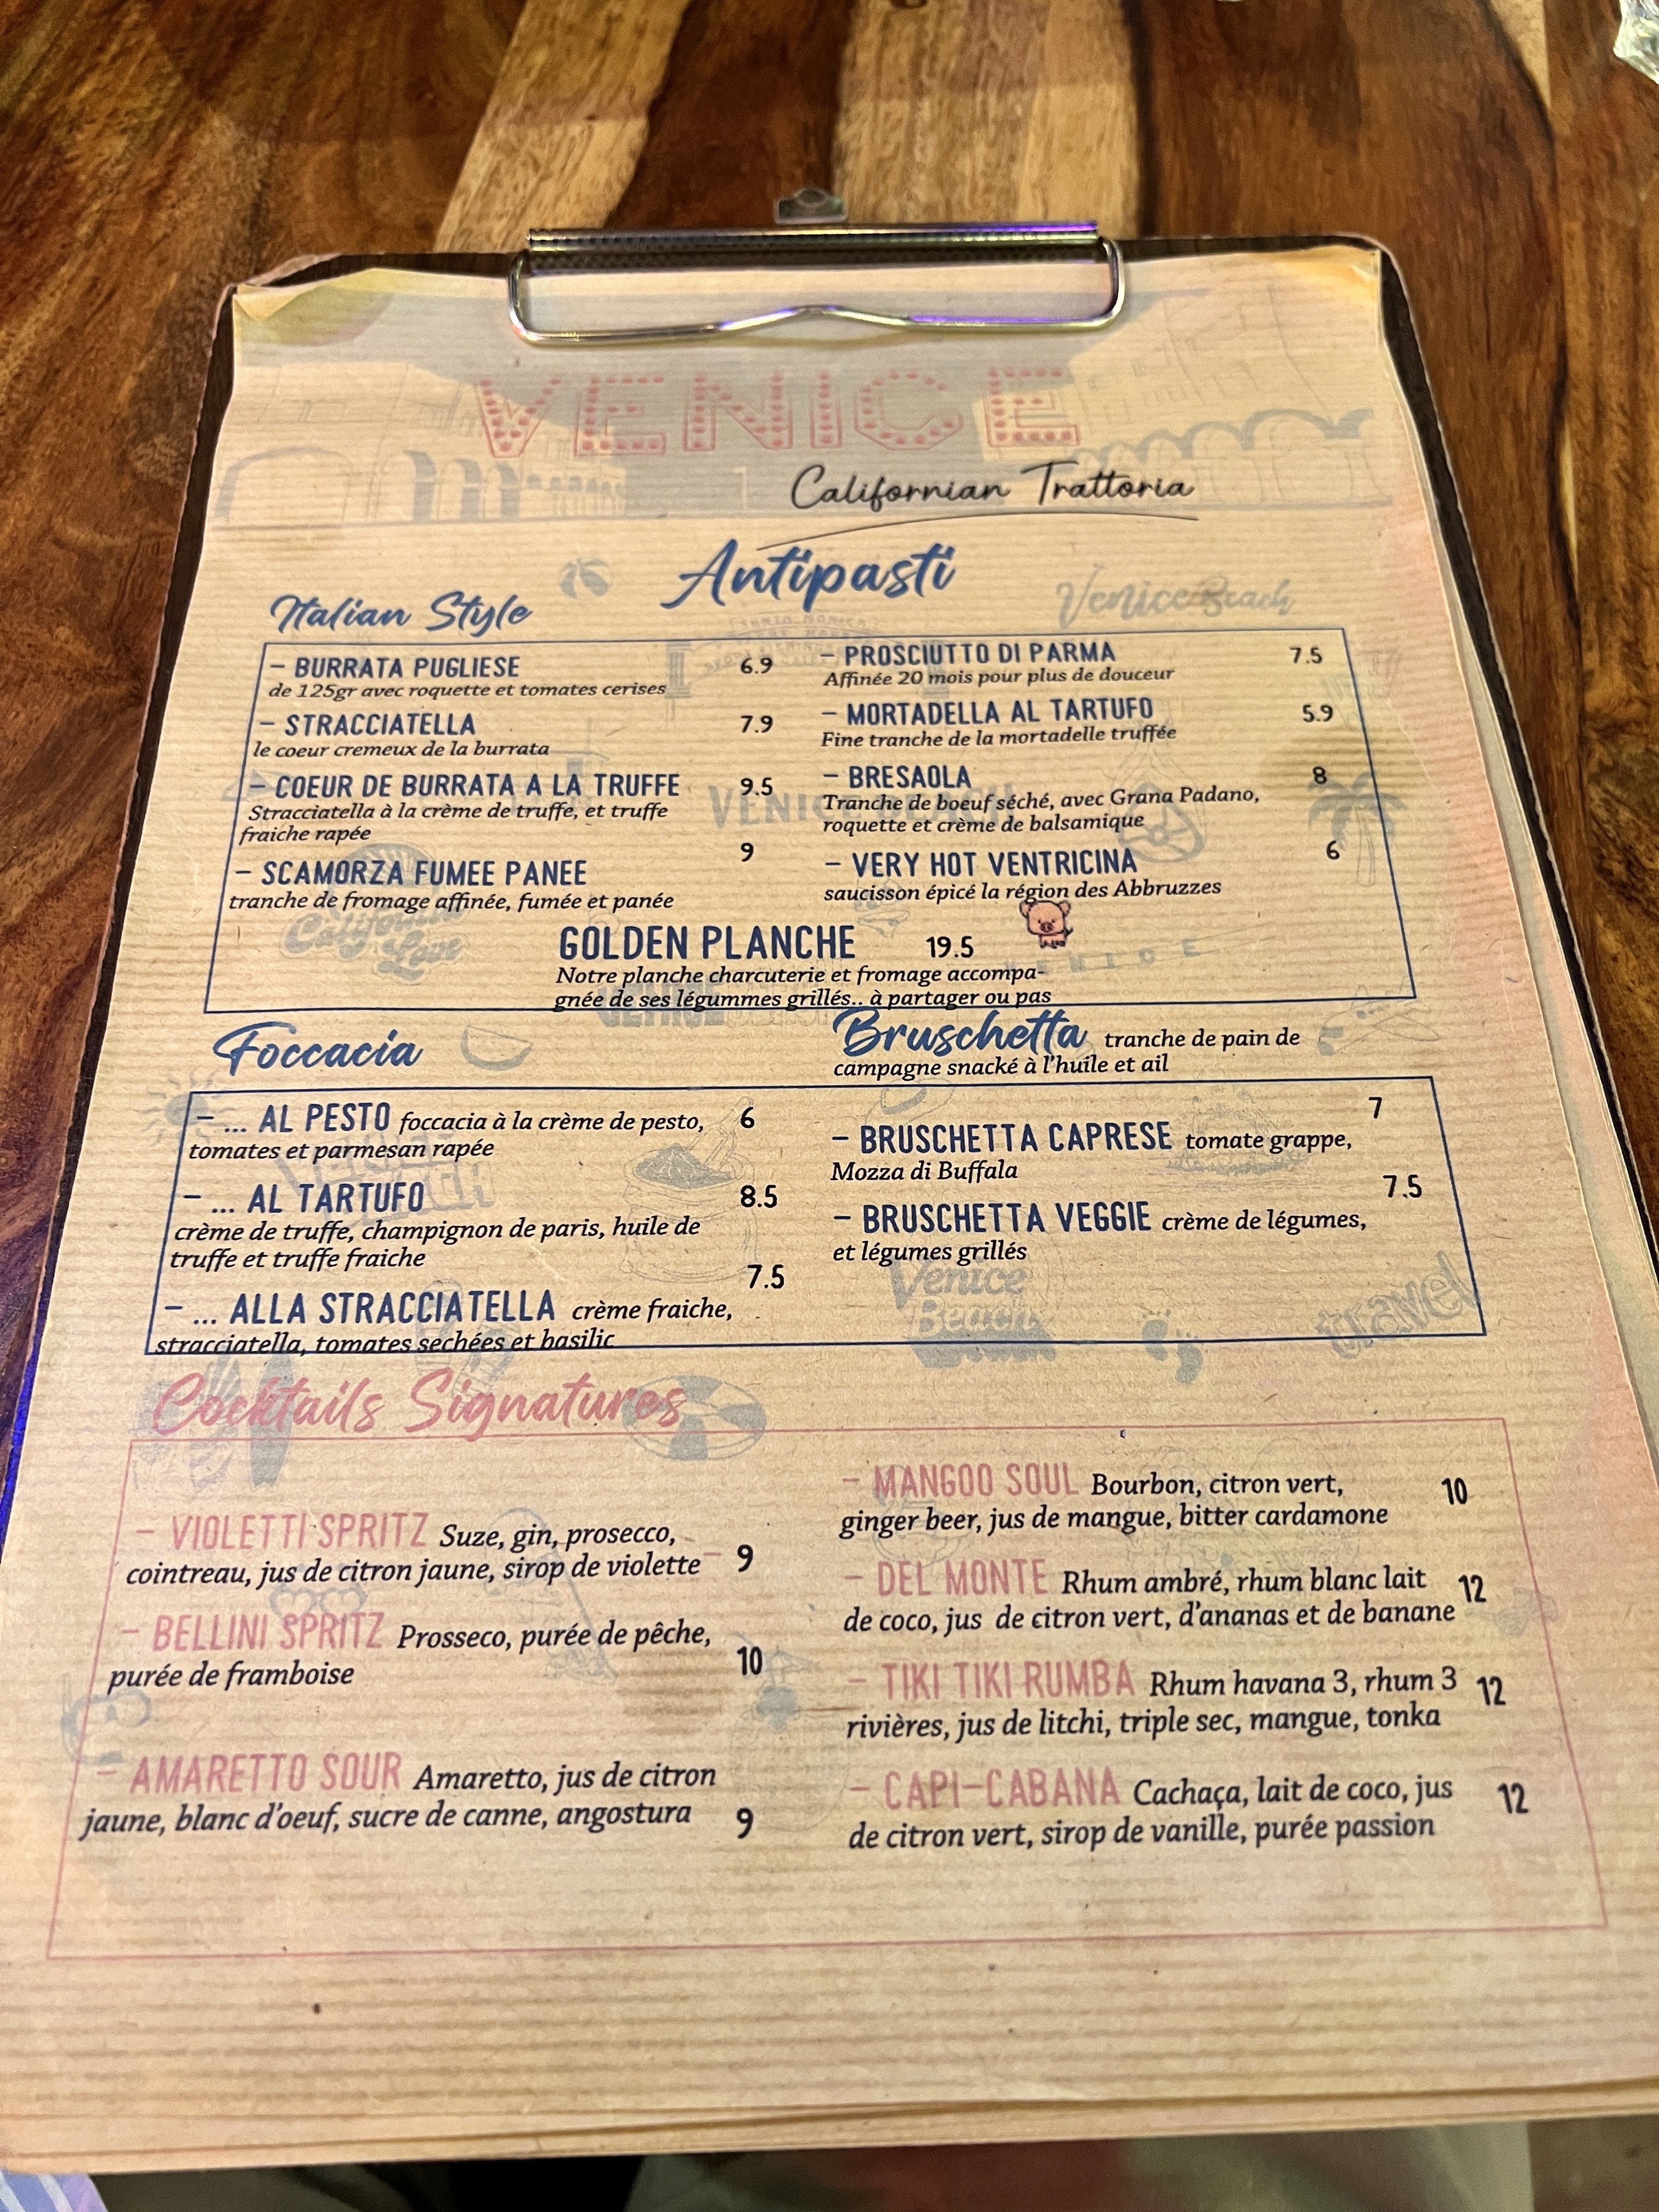 VENICE
Californian Trattoria
Antipasti
Italian Style
Venice Beach
– BURRATA PUGLIESE 6.9
de 125gr avec roquette et tomates cerises
– STRACCIATELLA 7.9
le coeur cremeux de la burrata
– COEUR DE BURRATA A LA TRUFFE 9.5
Stracciatella à la crème de truffe, et truffe
fraiche rapée
9
– SCAMORZA FUMEE PANEE
tranche de fromage affinée, fumée et panée
– PROSCIUTTO DI PARMA 7.5
Affinée 20 mois pour plus de douceur
– MORTADELLA AL TARTUFO 5.9
Fine tranche de la mortadelle truffée
– BRESAOLA 8
Tranche de boeuf séché, avec Grana Padano,
roquette et crème de balsamique
– VERY HOT VENTRICINA 6
saucisson épicé la région des Abbruzzes
GOLDEN PLANCHE 19.5
Notre planche charcuterie et fromage accompa-
gnée de ses légummes grillés.. à partager ou pas
California
Love
VENICE
Foccacia
– ... AL PESTO foccacia à la crème de pesto, 6
tomates et parmesan rapée
– ... AL TARTUFO 8.5
crème de truffe, champignon de paris, huile de
truffe et truffe fraiche
7.5
– ... ALLA STRACCIATELLA crème fraiche,
stracciatella, tomates sechées et basilic
Bruschetta tranche de pain de
campagne snacké à l'huile et ail
7
– BRUSCHETTA CAPRESE tomate grappe,
Mozza di Buffala
7.5
– BRUSCHETTA VEGGIE crème de légumes,
et légumes grillés
Venice
Beach
travel
Cocktails Signatures
– VIOLETTI SPRITZ Suze, gin, prosecco,
cointreau, jus de citron jaune, sirop de violette – 9
– BELLINI SPRITZ Prosseco, purée de pêche,
purée de framboise 10
– AMARETTO SOUR Amaretto, jus de citron
jaune, blanc d'oeuf, sucre de canne, angostura 9
– MANGOO SOUL Bourbon, citron vert, 10
ginger beer, jus de mangue, bitter cardamone
– DEL MONTE Rhum ambré, rhum blanc lait 12
de coco, jus de citron vert, d'ananas et de banane
– TIKI TIKI RUMBA Rhum havana 3, rhum 3 12
rivières, jus de litchi, triple sec, mangue, tonka
– CAPI-CABANA Cachaça, lait de coco, jus 12
de citron vert, sirop de vanille, purée passion